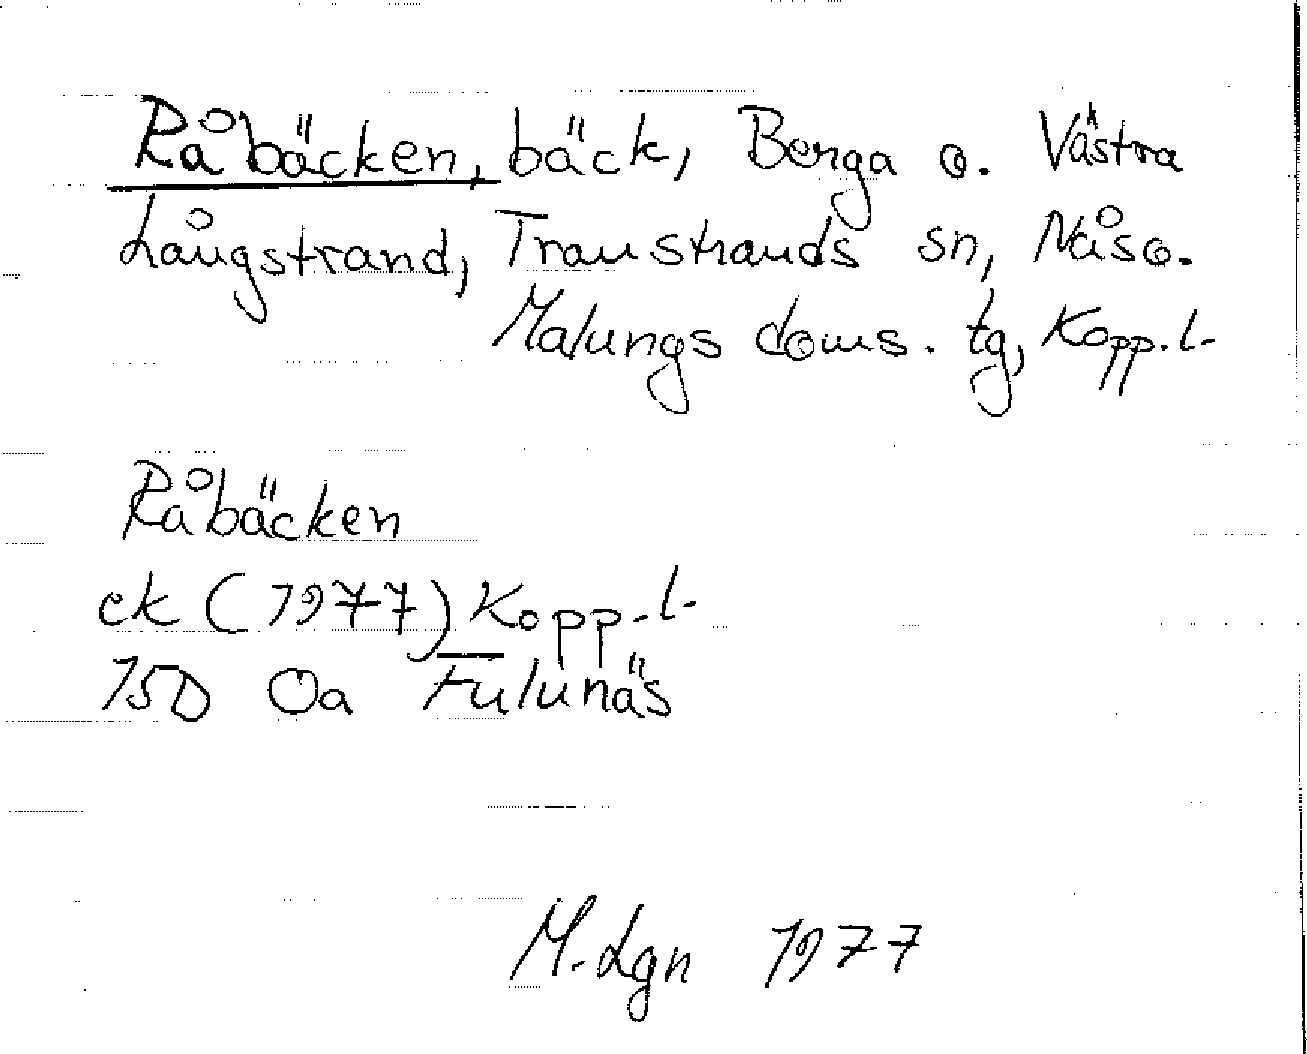 Råbäcken, bäck, Berga o. Västra
Långstrand, Transtrands sn, Nås o.
Malungs doms. tg, Kopp. l.
Råbäcken
ek (1977) Kopp. l.
15D Oa Fulunäs
M. Lgn 1977